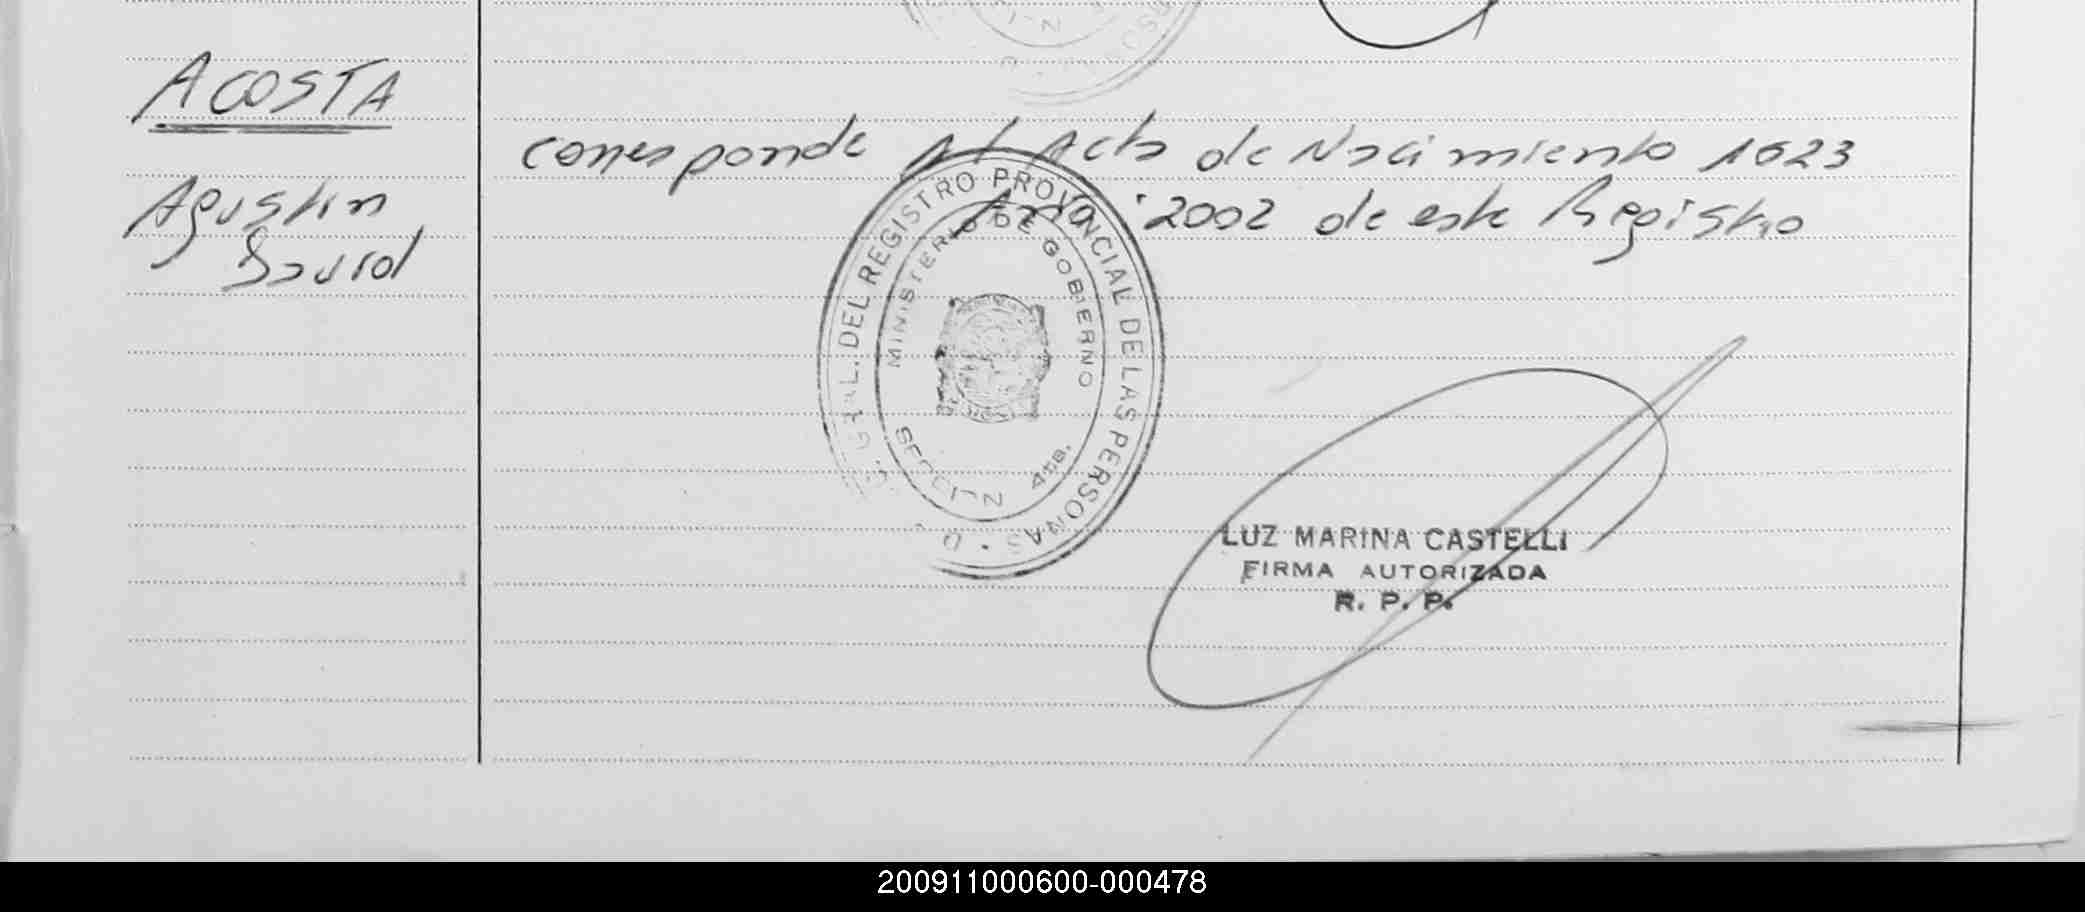 ACOSTA
Agustin
David
corresponde al Acta de Nacimiento 1623
Año 2002 de este Registro
GRAL. DEL REGISTRO PROVINCIAL DE LAS PERSONAS
MINISTERIO DE GOBIERNO
SECCION 4ta.
LUZ MARINA CASTELLI
FIRMA AUTORIZADA
R. P. P.
200911000600-000478